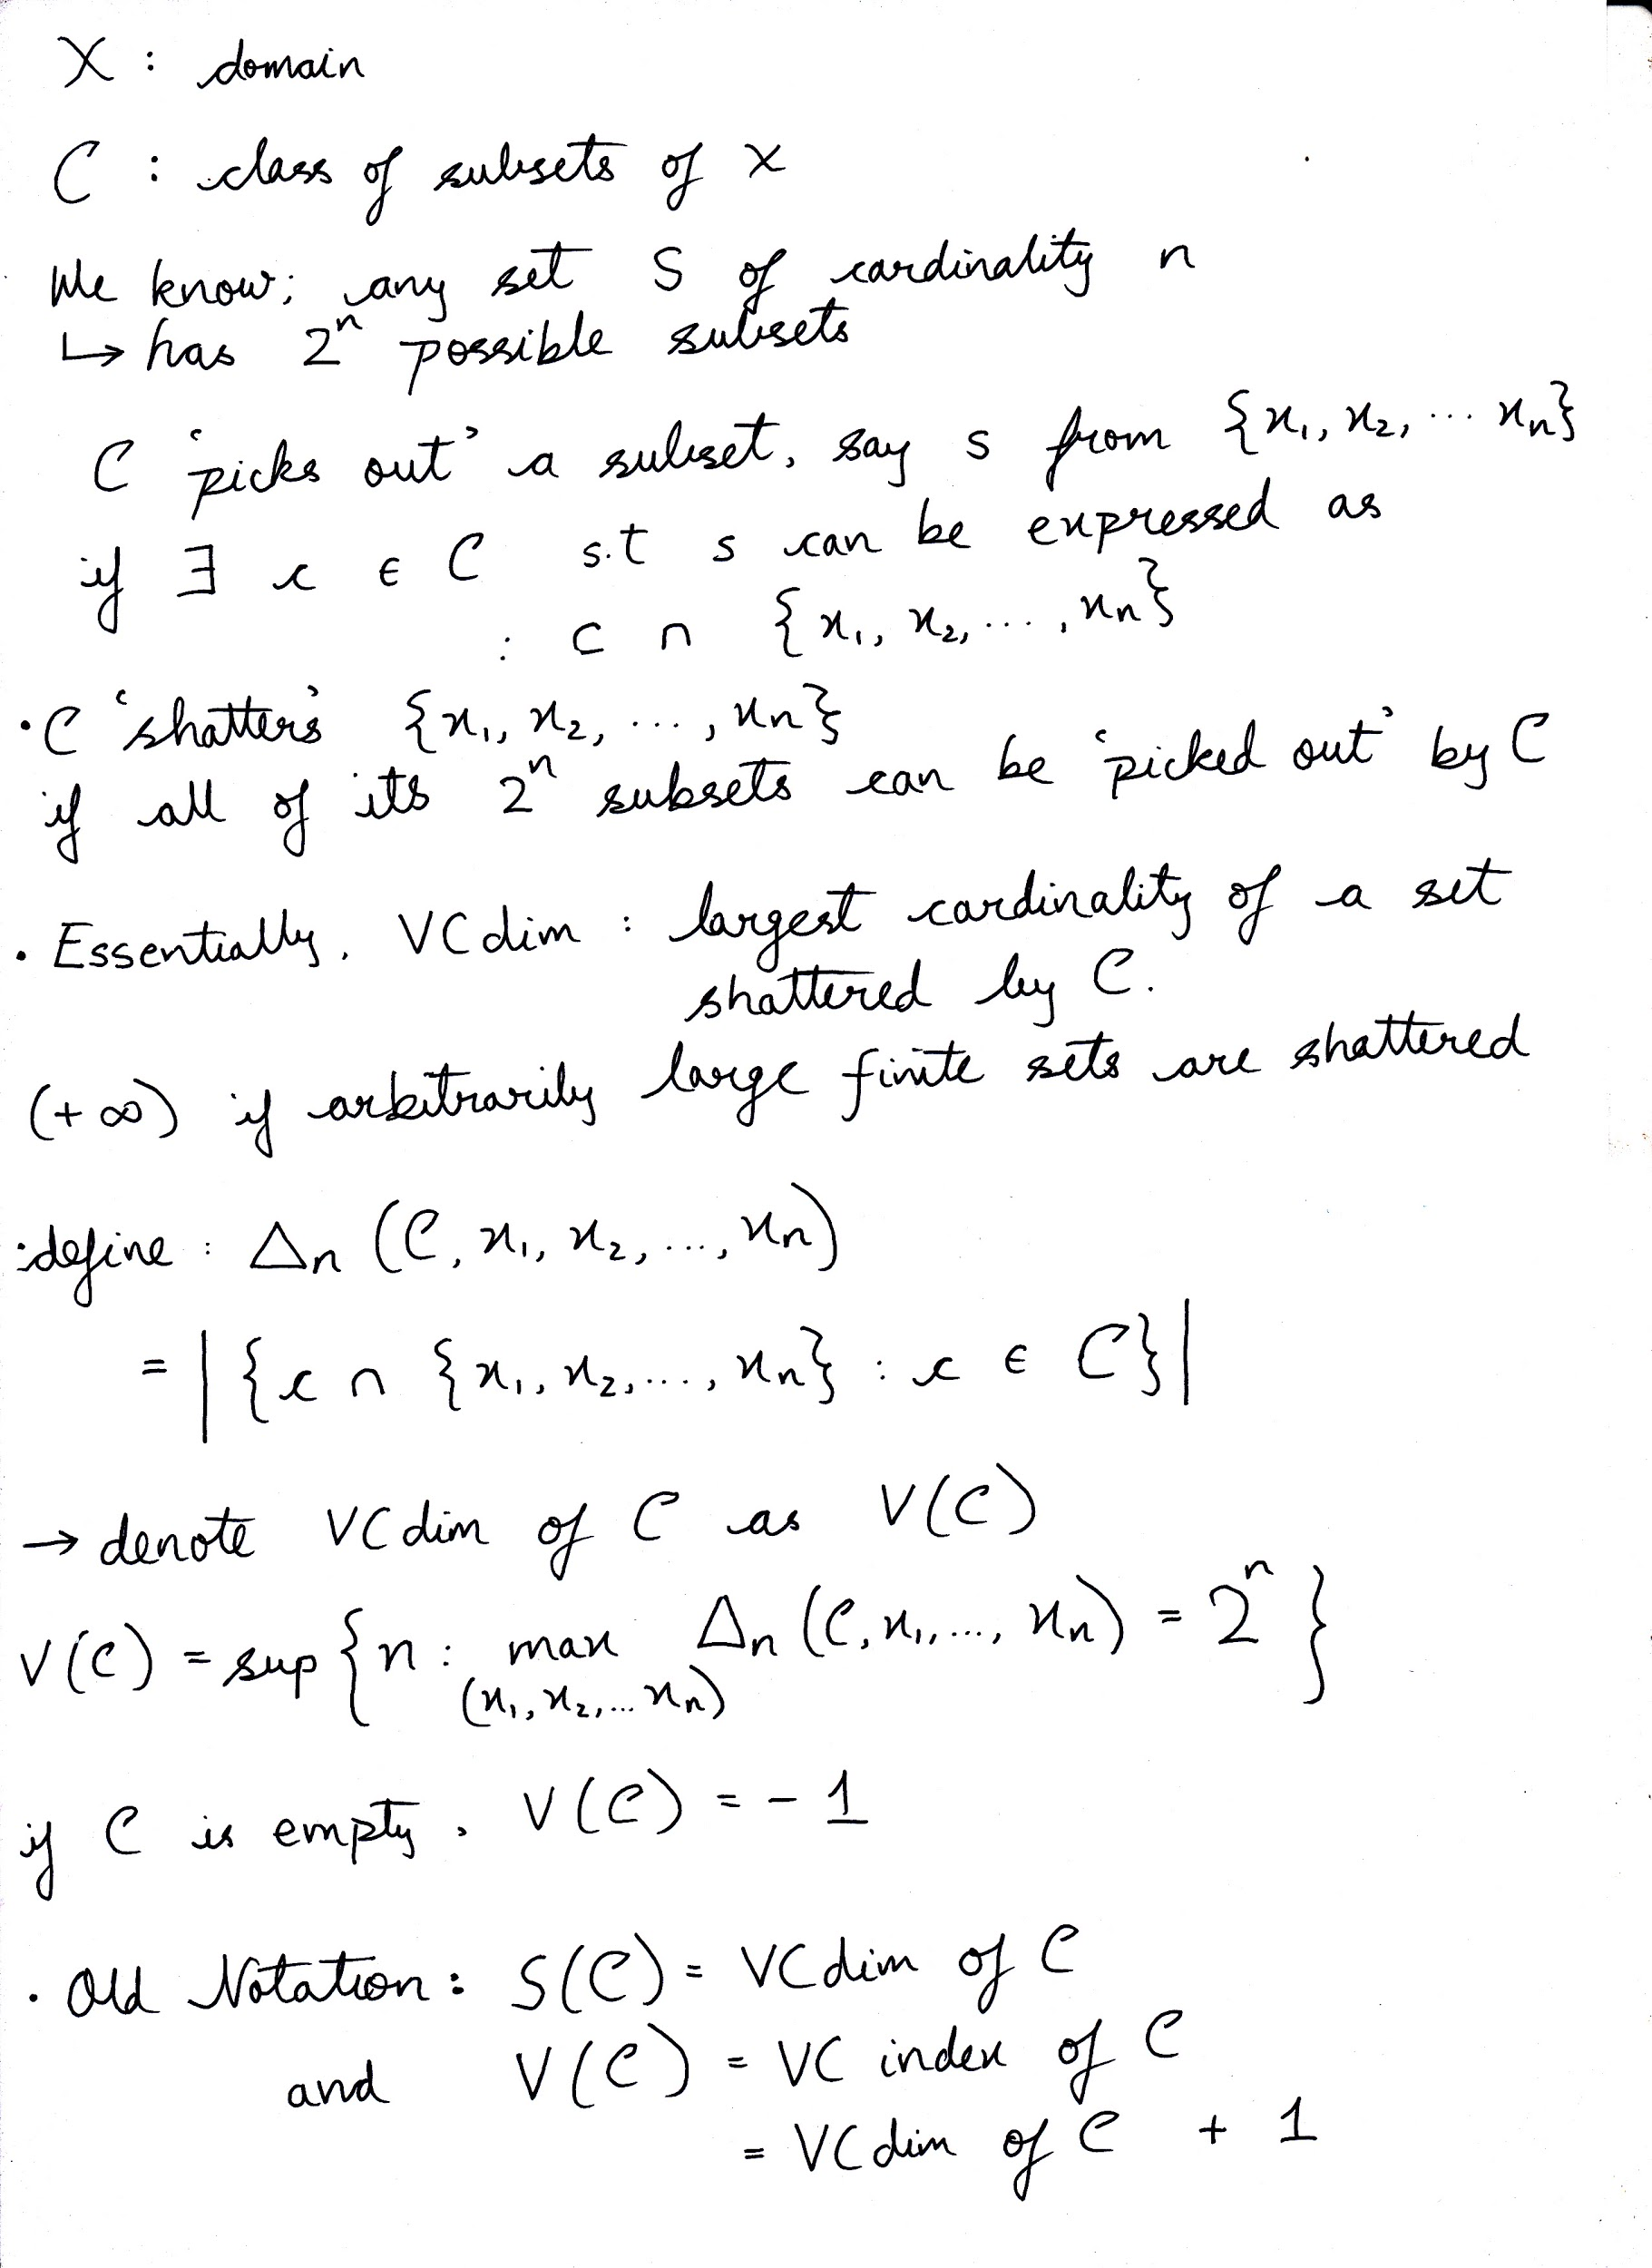 X : domain
C : class of subsets of X
We know; any set S of cardinality n
↳ has 2ⁿ possible subsets
C 'picks out' a subset, say s from {x₁, x₂, ... xₙ}
if ∃ c ∈ C s.t s can be expressed as
: c ∩ {x₁, x₂, ..., xₙ}
• C 'shatters' {x₁, x₂, ..., xₙ}
if all of its 2ⁿ subsets can be 'picked out' by C
• Essentially, VC dim : largest cardinality of a set
shattered by C.
(+∞) if arbitrarily large finite sets are shattered
:define : Δₙ (C, x₁, x₂, ..., xₙ)
= |{c ∩ {x₁, x₂, ..., xₙ} : c ∈ C}|
→ denote VC dim of C as V(C)
V(C) = sup {n : max Δₙ (C, x₁, ..., xₙ) = 2ⁿ}
(x₁, x₂, ... xₙ)
if C is empty, V(C) = - 1
• Old Notation : S(C) = VC dim of C
and V(C) = VC index of C
= VC dim of C + 1